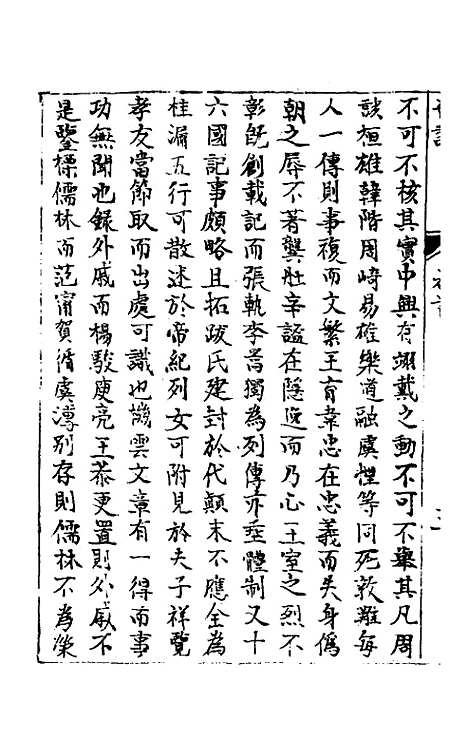 不可不核其實中興有翊戴之勳不可不舉其凡周
談桓雄韓階周崎易雄樂道融虞悝等同死敦難每
人一傳則事複而文繁王育韋忠在忠義而失身偽
朝之辱不著龔壯辛謐在隱逸而乃心王室之烈不
彰既創載記而張軌李暠獨為列傳亦乖體制又十
六國記事頗略且拓跋氏建封於代顛末不應全為
桂漏五行可散述於帝紀列女可附見於夫子祥覽
孝友當節取而出處可議也機雲文章有一得而事
功無聞也録外戚而楊駿庾亮王恭更置則外戚不
是鑒標儒林而范甯賀循虞溥别存則儒林不為榮